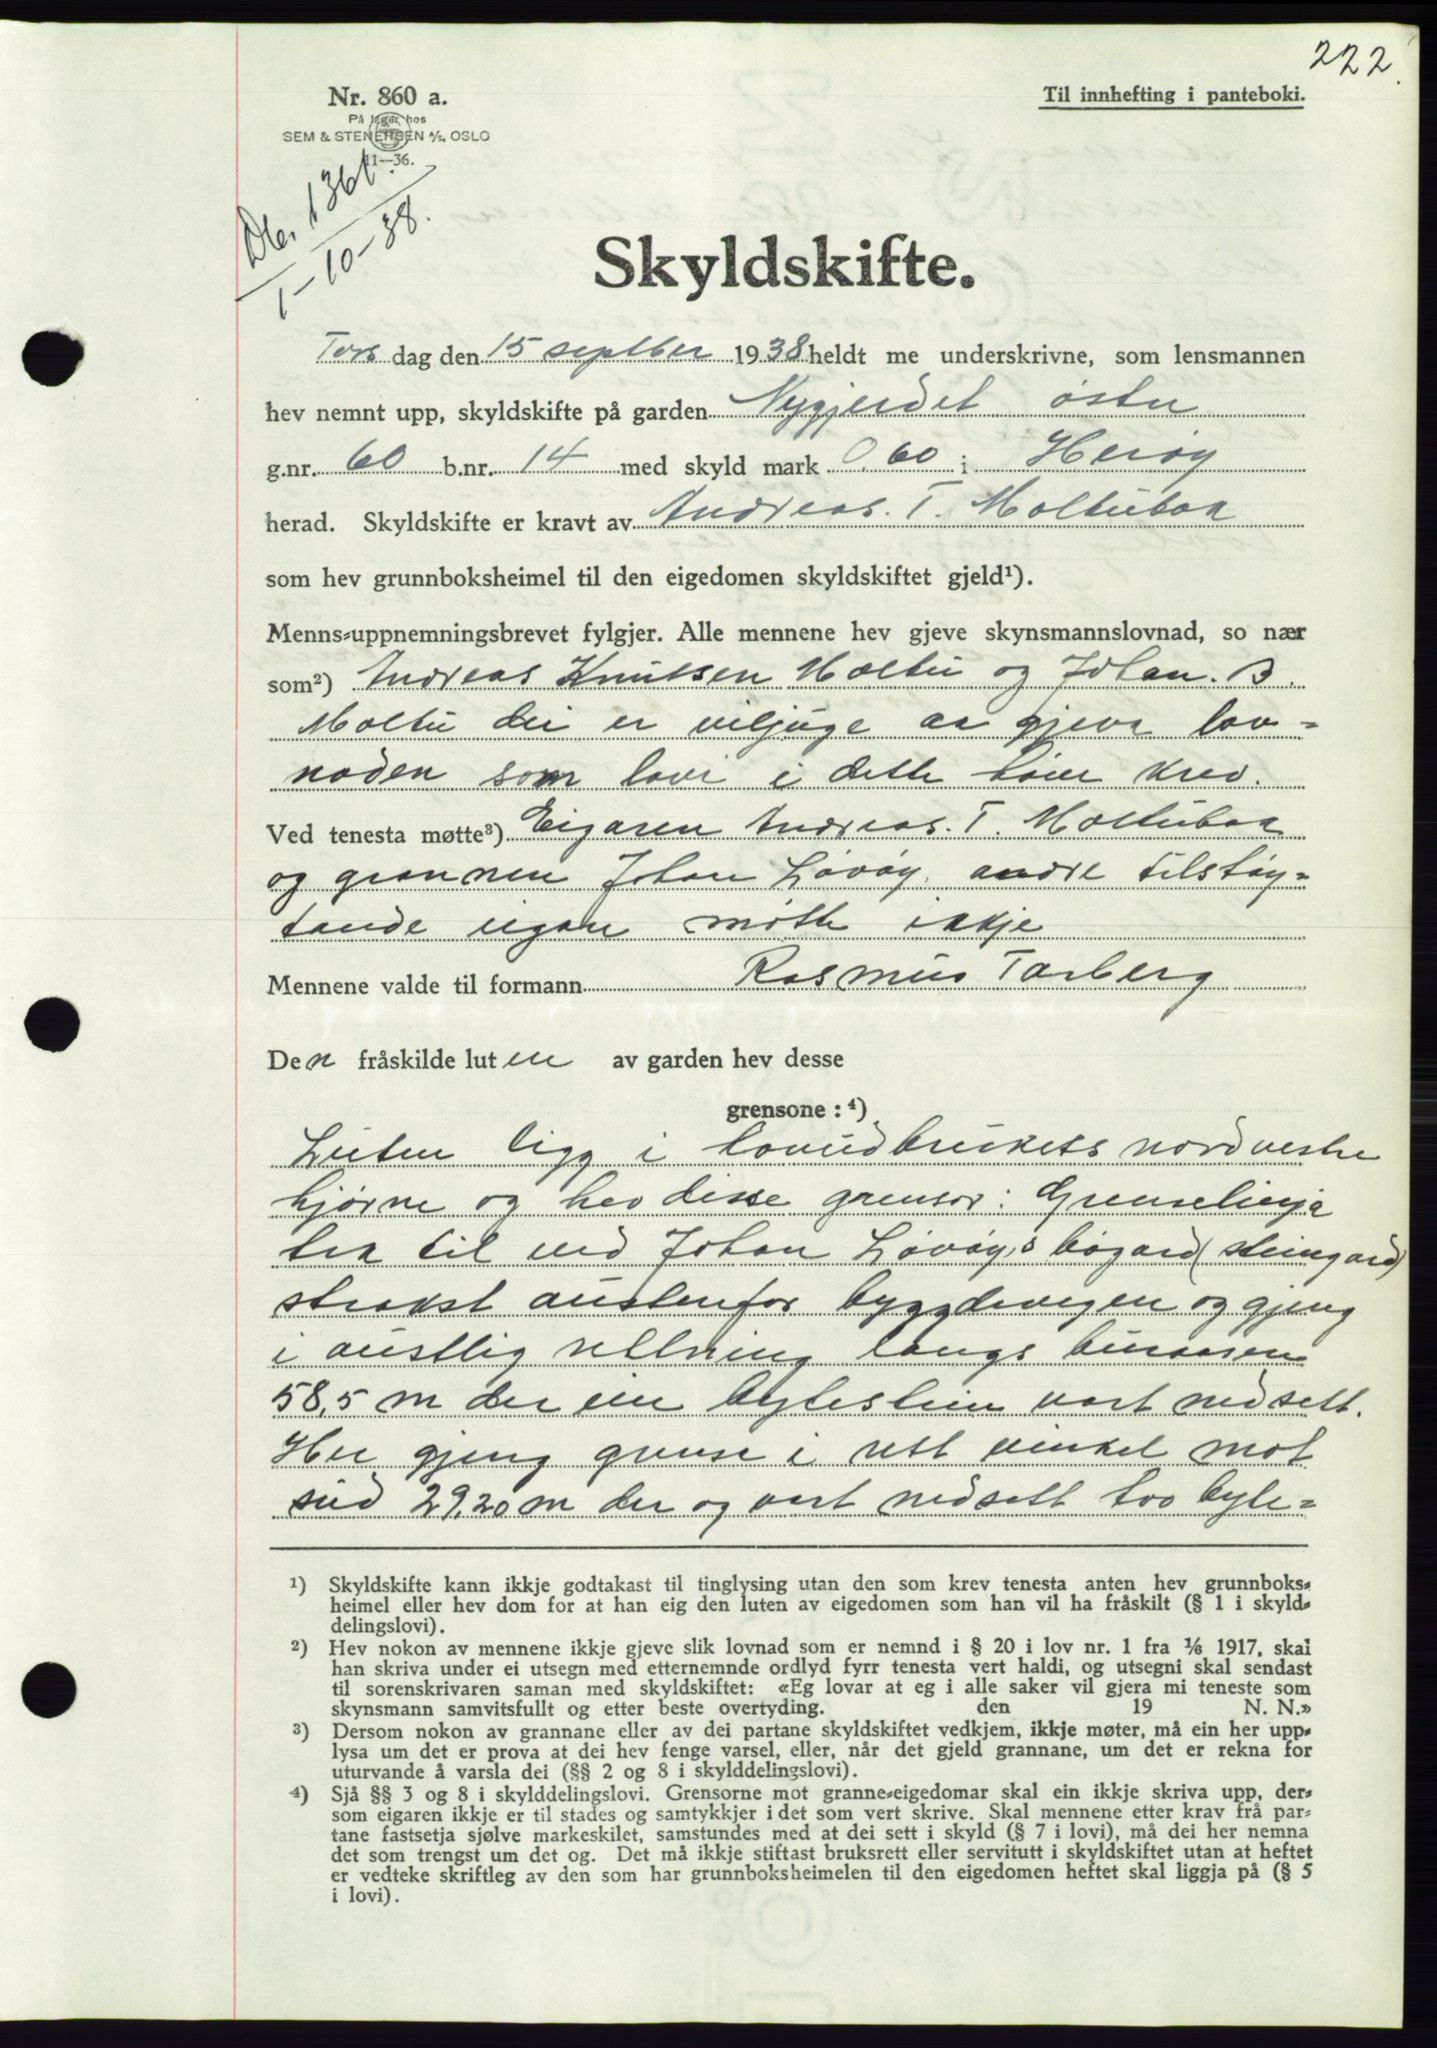 222.
Nr. 860 a.
Til innhefting i panteboki.
På lager hos
SEM & STENERSEN A/S, OSLO
11—36.
Db. 1361
1-10-38.
Skyldskifte.
Tors dag den 15 septber 1938 heldt me underskrivne, som lensmannen
hev nemnt upp, skyldskifte på garden Nygjerdet østre
g.nr. 60 b.nr. 14 med skyld mark 0.60 i Herøy
herad. Skyldskifte er kravt av Andreas. T. Moltubak
som hev grunnboksheimel til den eigedomen skyldskiftet gjeld¹).
Menns-uppnemningsbrevet fylgjer. Alle mennene hev gjeve skynsmannslovnad, so nær
som²) Andreas Knutsen Moltu og Johan. B.
Moltu dei er viljuge aa gjeva lov=
naden som lovi i dette høve krev.
Ved tenesta møtte³) Eigaren Andreas. T. Moltubak
og grannen Johan Løvøy. andre tilstøy=
tande eigare møtte ikkje
Mennene valde til formann Rasmus Tarberg
Den fråskilde luten av garden hev desse
grensone : ⁴)
Luten ligg i hovudbrukets nordvestre
hjørne og hev disse grensor: Grenselinja
tek til ved Johan Løvøy,s bøgard (steingard)
strakst austenfor bygdevegen og gjeng
i austlig rettning langs
58,5 m der ein bytestein vart nedsett.
Her gjeng grense i rett vinkel mot
sud 29,20 m der og vart nedsett tvo byte=
¹) Skyldskifte kann ikkje godtakast til tinglysing utan den som krev tenesta anten hev grunnboks-
heimel eller hev dom for at han eig den luten av eigedomen som han vil ha fråskilt (§ 1 i skyld-
delingslovi).
²) Hev nokon av mennene ikkje gjeve slik lovnad som er nemnd i § 20 i lov nr. 1 fra 1/6 1917, skal
han skriva under ei utsegn med etternemnde ordlyd fyrr tenesta vert haldi, og utsegni skal sendast
til sorenskrivaren saman med skyldskiftet: «Eg lovar at eg i alle saker vil gjera mi teneste som
skynsmann samvitsfullt og etter beste overtyding. den 19 N. N.»
³) Dersom nokon av grannane eller av dei partane skyldskiftet vedkjem, ikkje møter, må ein her upp-
lysa um det er prova at dei hev fenge varsel, eller, når det gjeld grannane, um det er rekna for
uturvande å varsla dei (§§ 2 og 8 i skylddelingslovi).
⁴) Sjå §§ 3 og 8 i skylddelingslovi. Grensorne mot granne-eigedomar skal ein ikkje skriva upp, der-
som eigaren ikkje er til stades og samtykkjer i det som vert skrive. Skal mennene etter krav frå par-
tane fastsetja sjølve markeskilet, samstundes med at dei sett i skyld (§ 7 i lovi), må dei her nemna
det som trengst um det og. Det må ikkje stiftast bruksrett eller servitutt i skyldskiftet utan at heftet
er vedteke skriftleg av den som har grunnboksheimelen til den eigedomen heftet skal liggja på (§ 5
i lovi).